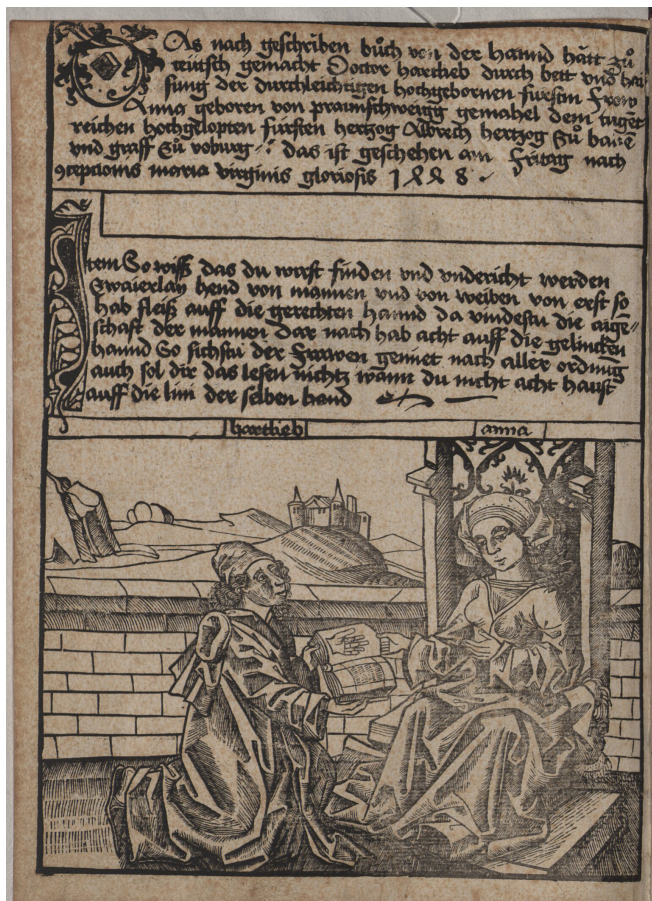 Das nach geschriben bůch von der hannd hätt zů
teutsch gemacht Doctor hartlieb durch bett vnd hai
sung der durchleichtigen hochgebornen fürstin Frow
Anna geboren von praunschweigg gemahel dem tuget
reichen hochgelopten fürsten hertzog Albrech hertzog zů baiē
vnd graff zů voburg das ist geschehen am fritag nach
ꝯcepcionis maria virginis gloriosis 1448
Item So wiss das du wirst finden vnd vndericht werden
Zwaierlay hend von mannen vnd von weiben von erst so
hab fleiß auff die gerechten hannd da vindestu die aige⸗
schaft der mannen Dar nach hab acht auff die gelincken
hannd So sichstu der frawen geniet nach aller ordnug
auch sol dir das lesen nichtz wann du nicht acht haust
auff die lini der selben hand
hartlieb
anna